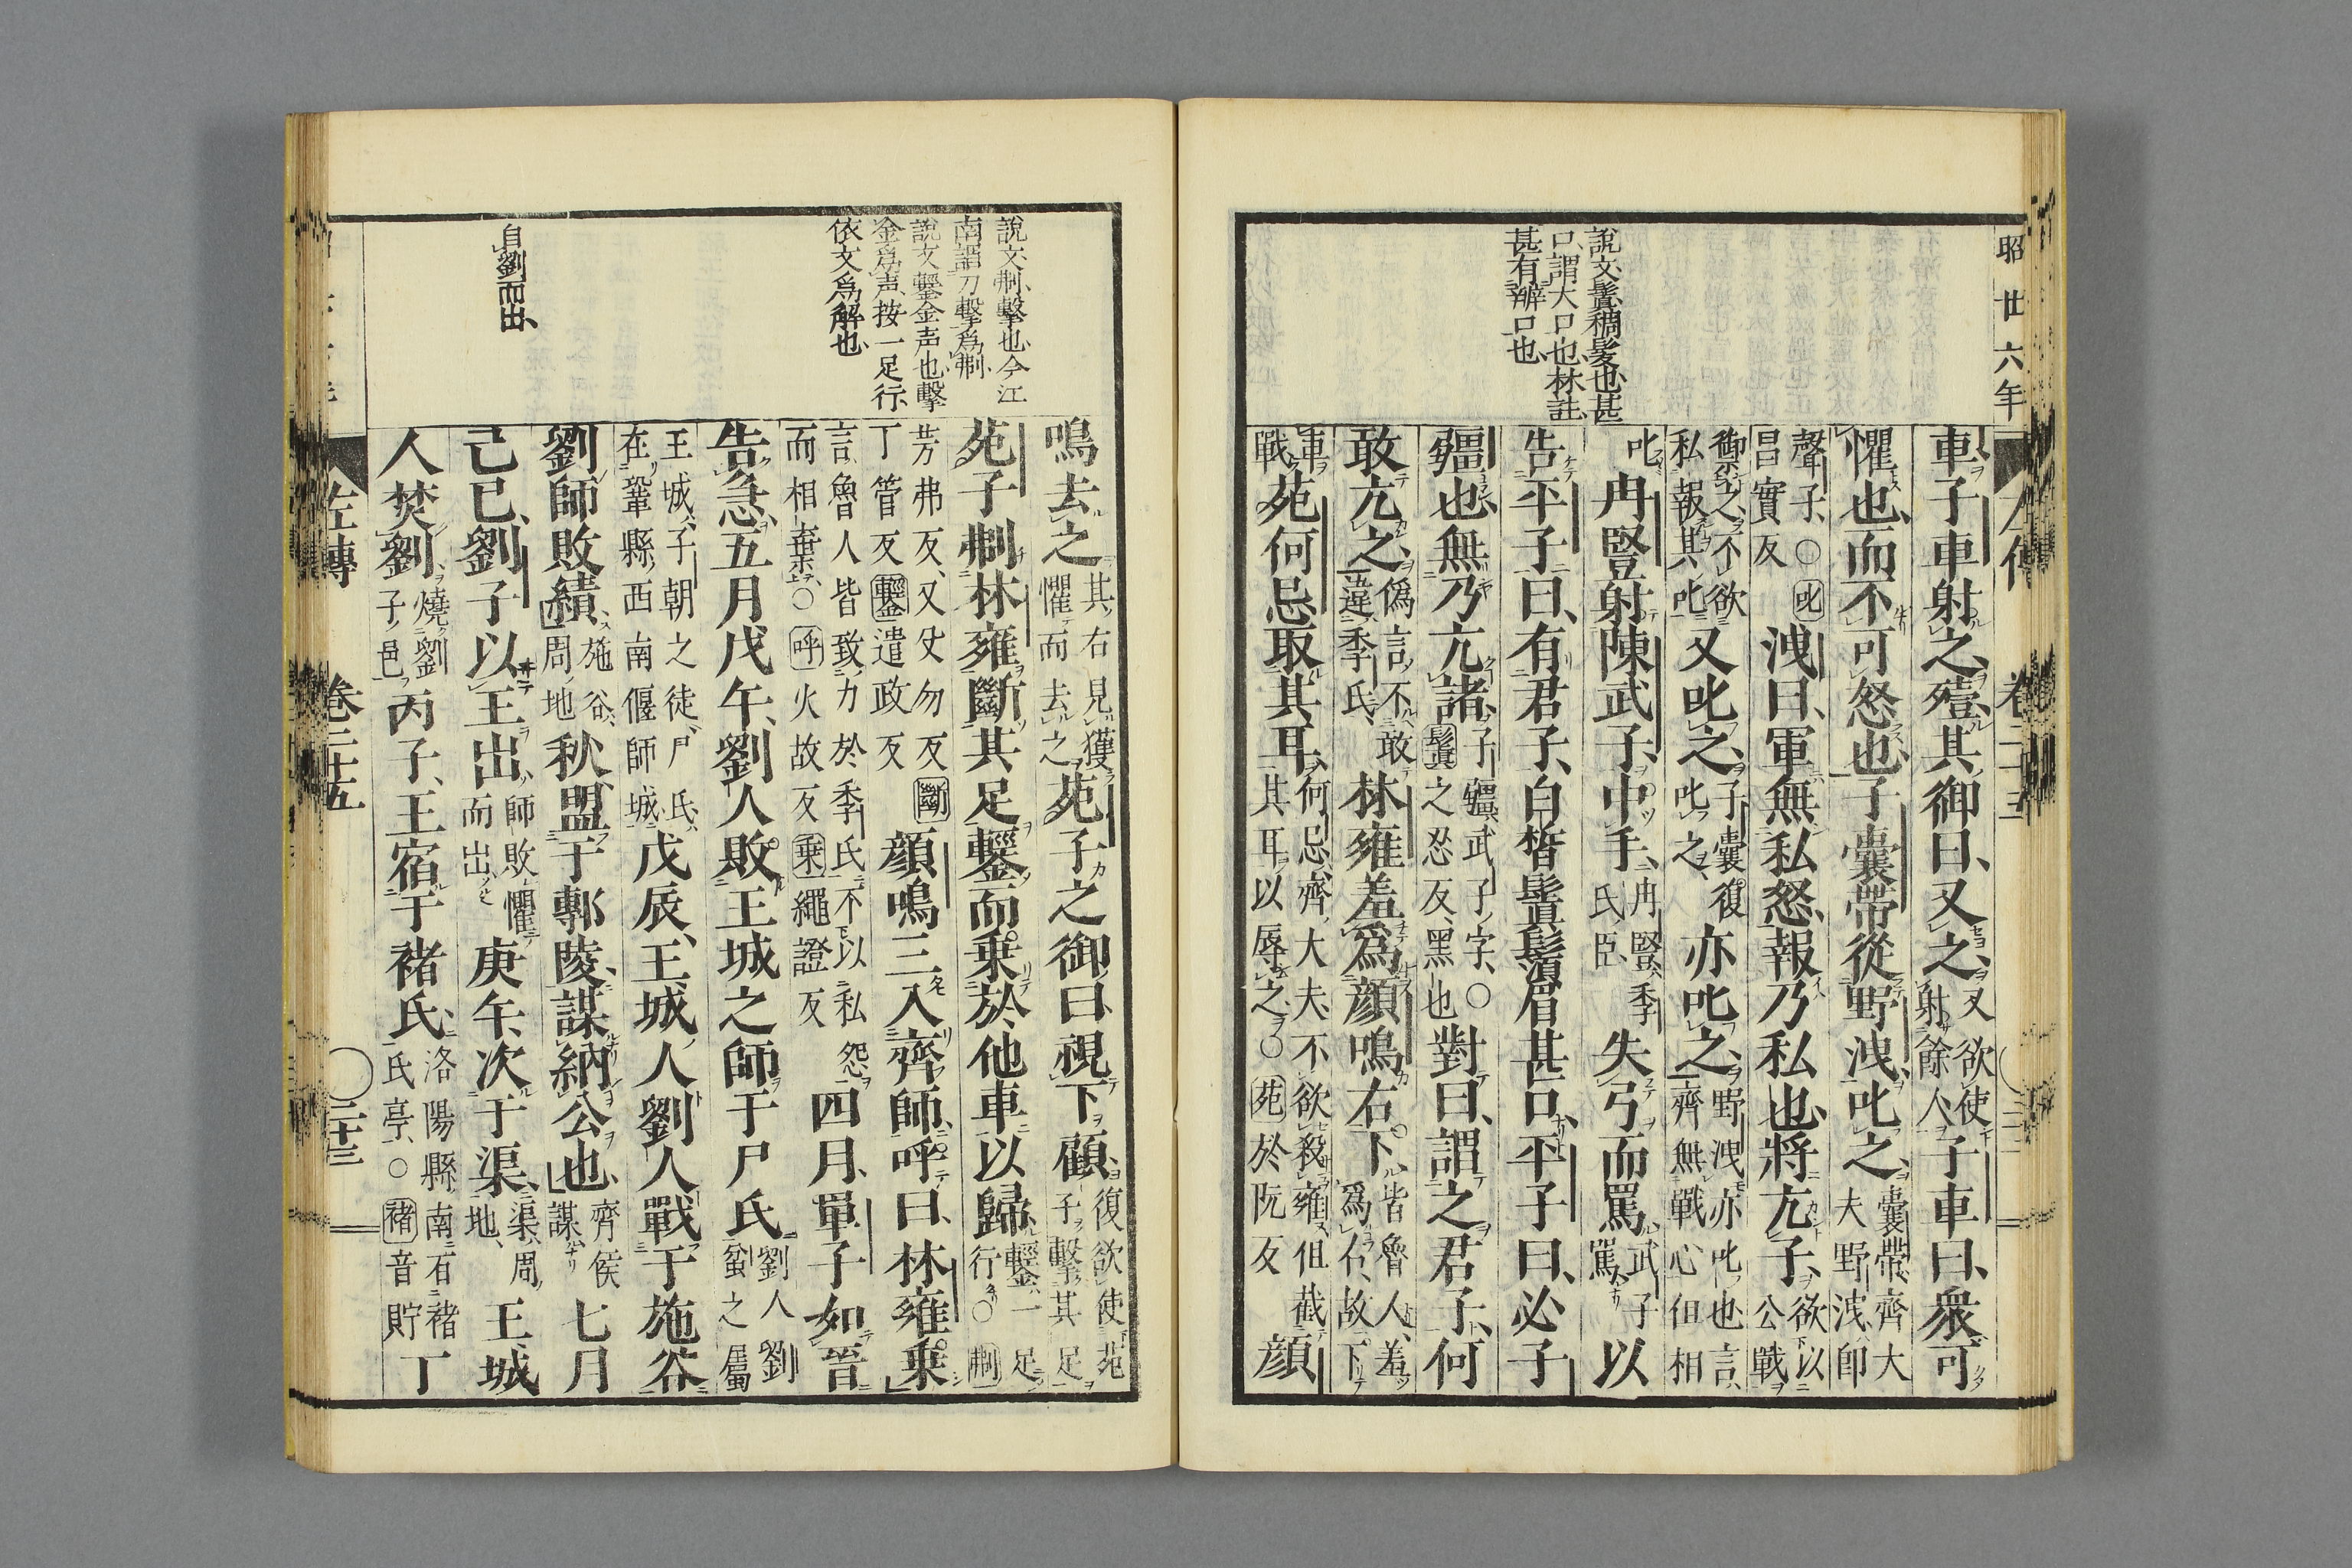 昭廿六年
說文鬒稠髮也甚
口謂大口也林註
甚有辯口也
車子車射之殪其御曰又之又欲使射餘人子車曰衆可
懼也而不可怒也子囊帶從野洩叱之囊帶齊大夫野洩卽
聲子○叱昌實反洩曰軍無私怒報乃私也將亢子欲以公戰
禦之不欲私報其叱又叱之子囊復叱之亦叱之野洩亦叱也言齊無戰心但相
叱冉豎射陳武子中手冉豎季氏臣失弓而罵武子罵以
告平子曰有君子白皙鬒鬚眉甚口平子曰必子
彊也無乃亢諸子彊武子字○鬒之忍反黑也對曰謂之君子何
敢亢之僞言不敢違季氏林雍羞爲顏鳴右下皆魯人羞爲右故下
車戰苑何忌取其耳何忌齊大夫不欲殺雍但截其耳以辱之○苑於阮反顏
說文刜擊也今江
南謂刀擊爲刜
說文鑋金声也擊
金爲声按一足行
依文爲解也
自劉而出
鳴去之其右見獲懼而去之苑子之御曰視下顧復欲使苑子擊其足
苑子刜林雍斷其足鑋而乘於他車以歸鑋一足行○刜
芳弗反又父勿反斷丁管反鑋遣政反顏鳴三入齊師呼曰林雍乘
言魯人皆致力於季氏不以私怨而相棄○呼火故反乘繩證反四月單子如晉
告急五月戊午劉人敗王城之師于尸氏劉人劉蚠之屬
王城子朝之徒尸氏在鞏縣西南偃師城戊辰王城人劉人戰于施谷
劉師敗績施谷周地秋盟于鄟陵謀納公也齊侯謀七月
己巳劉子以王出師敗懼而出庚午次于渠渠周地王城
人焚劉燒劉子邑丙子王宿于褚氏洛陽縣南有褚氏亭○褚音貯丁
左傳
卷二十五
二十三